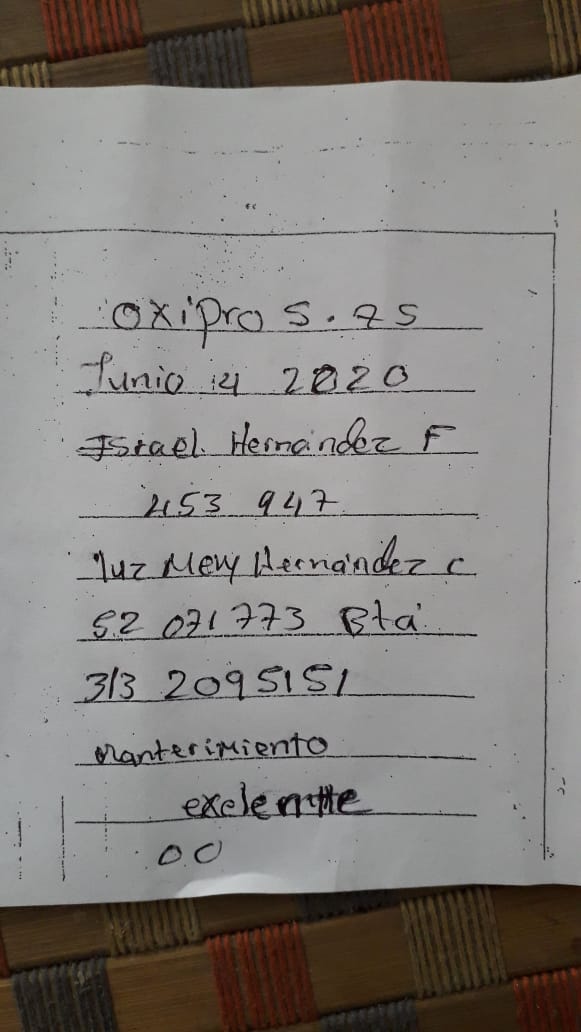 oxipro S.75
Junio 14 2020
Israel. Hernández F
453 947
luz Mery Hernández C
52 071773 Bta
313 2095151
Manterimiento
exelente
00